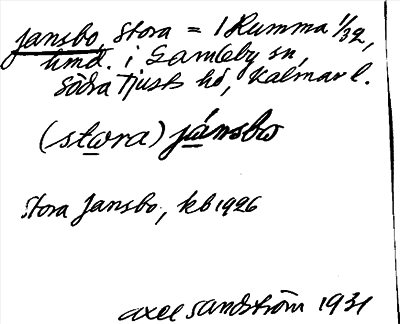 Jansbo Stora = 1 Rumma 1/32,
hmd. i Gamleby sn,
Södra Tjusts hd, Kalmar l.
(stωra) jánsbω
Stora Jansbo, kb 1926
Axel Sandström 1931